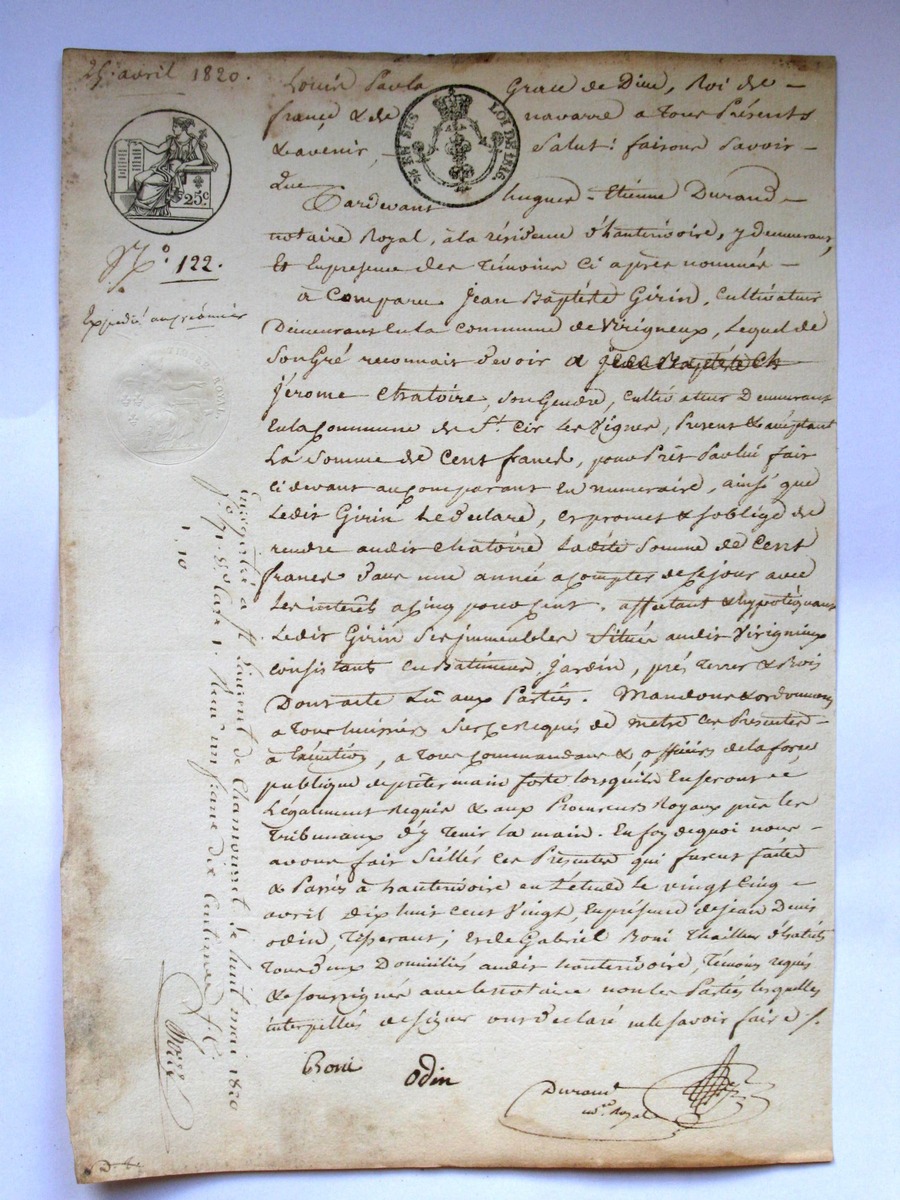 25. avril 1820.
25c
N.o 122.
Expedié au créancier
¼ EN SUS LOI DE 1816
ROYAL
Louis Par la Grace de Dieu, Roi de
france & de navarre a Tous Présents
& avenir, Salut: faisons Savoir
Que
Pardevant hugues-Etiénne Durand
notaire Royal, à la résidence d'hauterivoire, y demeurant,
Et En présence des Témoins Ci après nommés
à Comparu Jean Baptéste Girin, Cultivateur
Demeurant En la Commune de Virigneux, Lequel de
Son Gré reconnait devoir a Jean Baptéste Ch
Jérome Chatoire, Son Gendre, Cultivateur Demeurant
En la Commune de St. Cir Les Vignes, Présent & acceptant
La Somme de Cent francs, pour Prêt Par lui fait
Ci devant au Comparant En numeraire, ainsi que
Ledit Girin Le declare, et promet & Soblige de
rendre audit Chatoire Ladite Somme de Cent
francs dans une année a Compter de Ce jour avec
Les intérêts a Cinq pour Cent. affectant & hypotéquant
Ledit Girin Ses immeubles Situés audit Virigneux
Consistant En Batiments Jardin, prés Terres & Bois
Dont acte Lû aux Parties. Mandons & ordonnons
a Tous huissiers Sur Ce Requis de Metre Ces Présentes
à Exécution, a Tous Commandans & officiers de la force
publique de prêter main forte lorsquils En Seront
Légalement Requis & aux Procureurs Royaux près les
Tribunaux d'y Tenir La main. En foy de quoi nous
avons fait Scéllés Ces Présentes qui furent faites
& Passés à hauterivoire en L'étude Le vingt Cinq
avril Dix huit Cent Vingt, En présence de Jean Denis
Odin, Tisserant; Et de Gabriel Boni Thailleur d'habits
Tous deux Domiciliés audit hauterivoire, Témoins requis
& Soussignés avec Le notaire non les Parties lesquelles
interpellés de Signer ont déclaré ne le Savoir faire
Boni
Odin
Durand
no.re Royal
Enregistré a St Laurent de Chamousset le huit mai 1820
Reçu un franc dix Centimes
1, 10